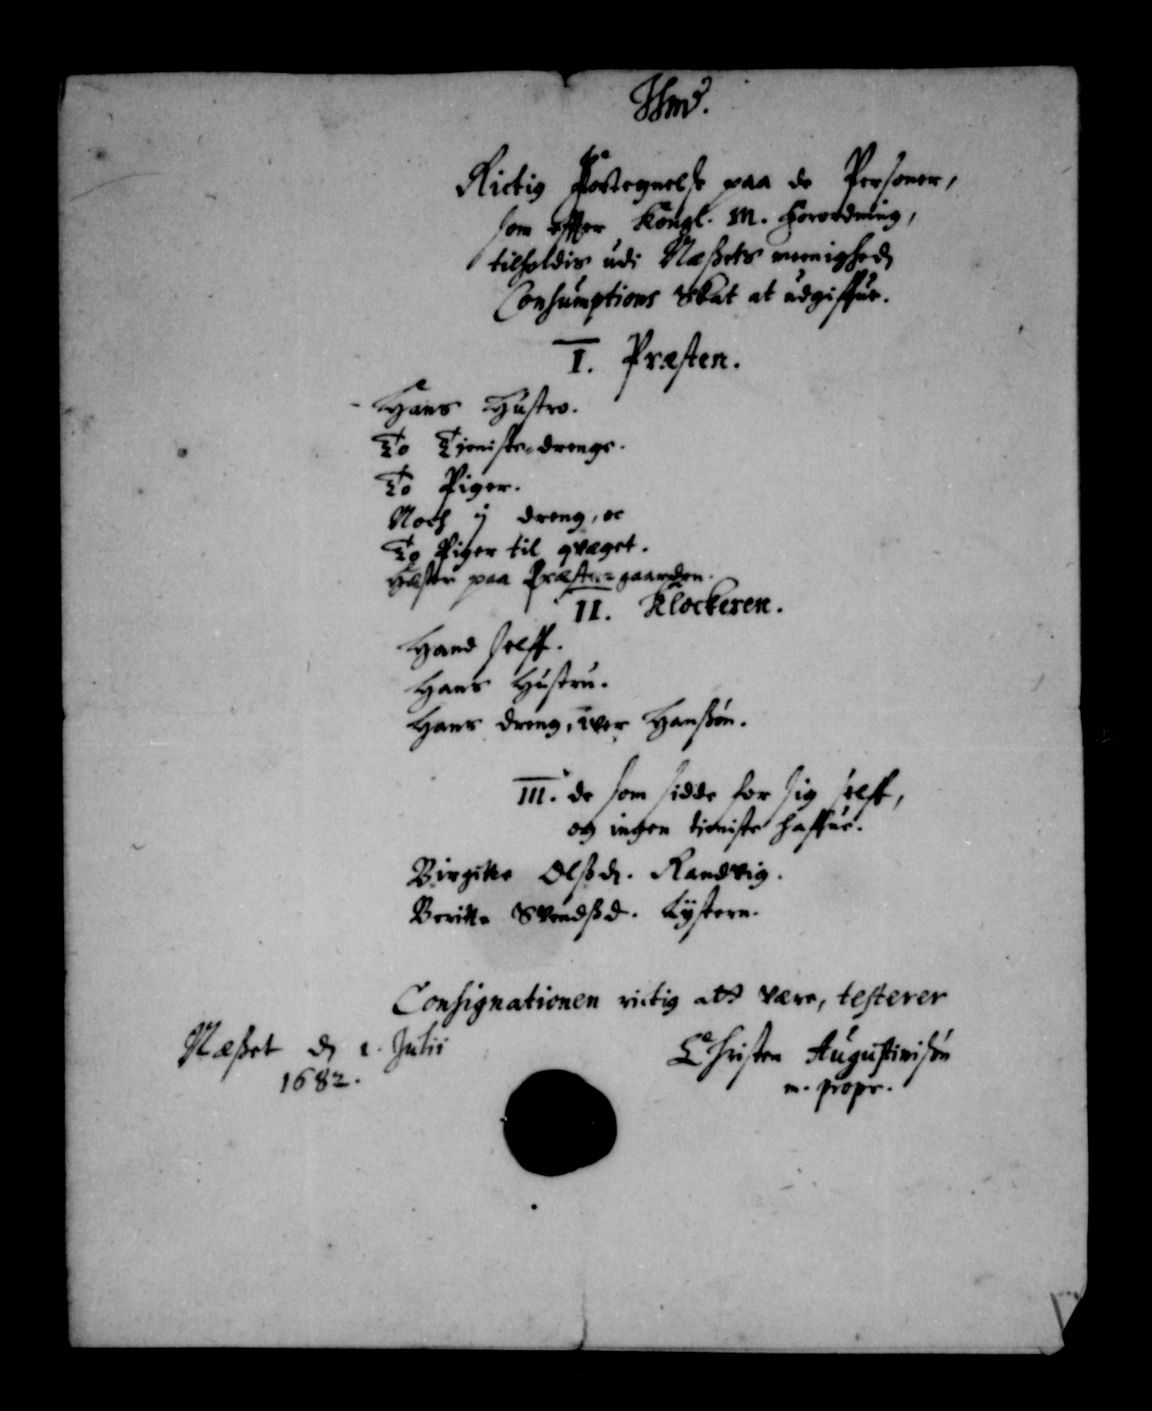 Rictig Fortegnelse paa de Personer,
som effter Kongl. M. Forordning,
tilholdis udi Næssets meenighed
Consumptions Skat at udgiffue.
I. Præsten.
Hans Hustro.
To Tieniste-drenge.
To Piger.
Noch ij dreng, oc
To Piger til qvæget.
Heste paa Præste-gaarden.
II. Klockeren.
Hand selff.
Hans Hustru.
Hans dreng, Iver Hanssøn.
III. de som sidde for sig selff,
og ingen tieniste haffue.
Birgitte Olssd. Randvig.
Beritte Svendssd. Lystern.
Consignationen rictig att være, testerer
Næsset d. 1. Julii
1682.
Christen Augustinisøn
m. propr.